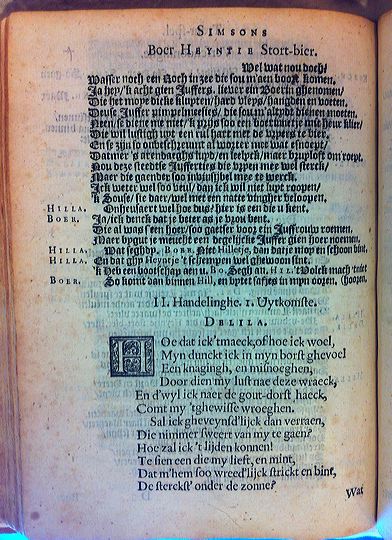 SIMSONS
Boer HEYNTIE Stort-bier.
Wel wat nou doch/
Wasser noch een Toch in zee die sou m'aen boort komen,
Ja hey/ k acht gien Juffers, liever ein Boerin ghenomen/
Die het moye dicke kluyten/ hard vleys/ hangden en voeten.
Souse Juffer pimpelneesties/ die sou m'altydt dienen moeten.
Neen/se diene me niet/ k prijs soo een
Die wil lustigh upt een rul hart met de vryers te bier.
En se zijn so onbeschreumt al worter met wat esnoept/
Datmer 's avendaeghs kyd/en leelyck/maer bruyloft om roept.
Nou dese steedtse Juffertjes die vryen mee wel sterck/
Maer die gaender soo invisibel mee te werck.
Ick weter wel soo veul/ dan ick wil niet lupt roopen/
k Souse/ sie daer/ wel met een natte vingher beloopen.
HILLA. Onheusaert wel hoe dus/ hier is een die u kent.
BOER. Ja/ick denck dat je beter as je broer bent.
Die al was's een hoer/ soo gaetser voor ein Juffrouw roemen.
Maer bygut je meucht een degelicke Juffer gien hoer noemen.
HILLA. Wat seghdy. BOER. Niet Hilletje, dan daer is niop en schoon bint,
HILLA. En dat ghy Heyntje t'schempen wel ghewoon sint.
k Heb een bootschap aen u. BO. Segh an. HIL. 't Volck mach't niet
BOER. So komt dan binnen Hill, en bytet safjes in myn ooren. (hooren,
II. Handelinghe. 1. Uytkomste.
DELILA.
HOe dat ick 't maeck, of hoe ick woel,
Myn dunckt ick in myn borst ghevoel
Een knagingh, en misnoeghen,
Door dien my lust nae deze wraeck,
En d'wyl ick naer de gout-dorst haeck,
Comt my 'tghewisse wroeghen.
Sal ick gheveynsd'lijck dan verraen,
Die nimmer sweert van my te gaen?
Hoe zal ick 't lijden konnen!
Te sien een die my lieft, en mint,
Dat m'hem soo wreed'lijck strickt en bint,
De sterckst' onder de zonne?
Wat